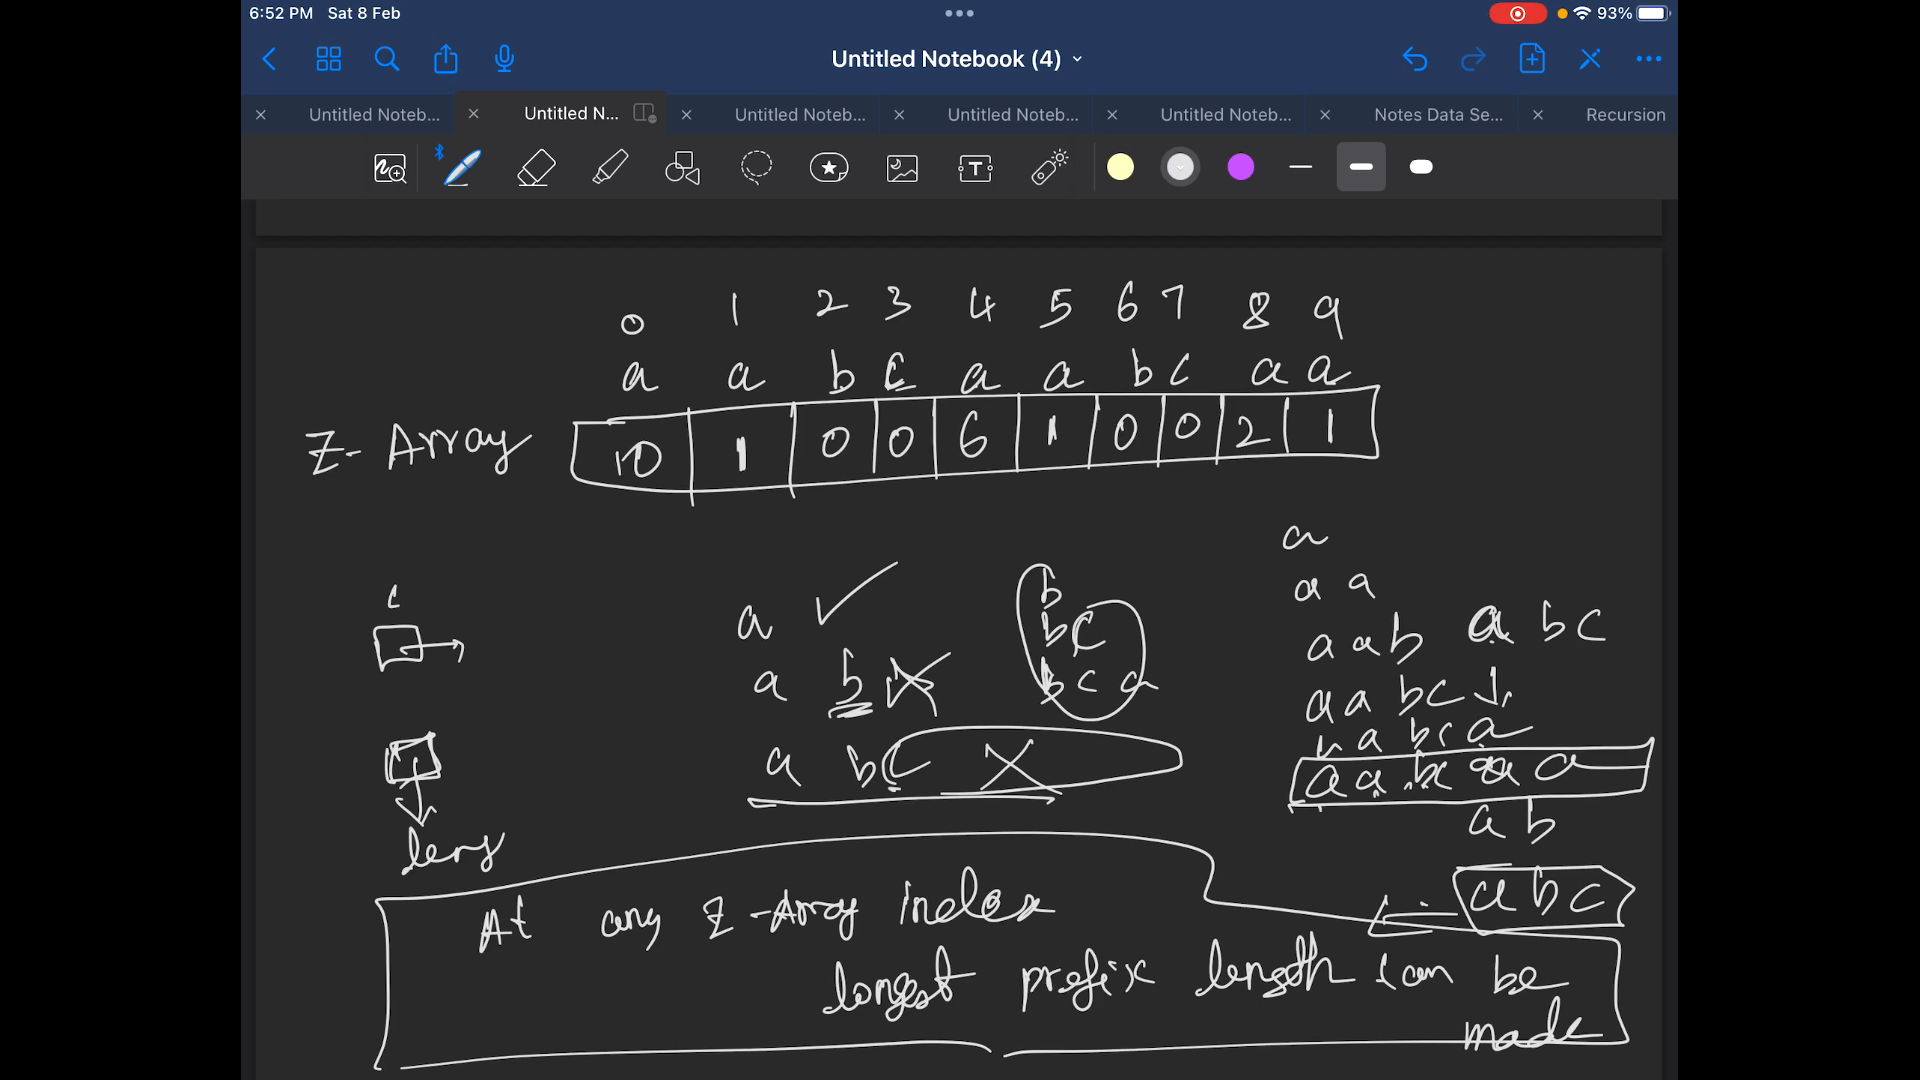 6:52 PM Sat 8 Feb
93%
Untitled Notebook (4)
Untitled Noteb... Untitled N... Untitled Noteb... Untitled Noteb... Untitled Noteb... Notes Data Se... Recursion
0 1 2 3 4 5 6 7 8 9
a a b c a a b c a a
Z-Array 10 1 0 0 6 1 0 0 2 1
a
a a
a b
a a b a b c
b c
a b b c a
a a b c
a a b c a
a b c
a a b c a a
a b
a b c
At any Z-Array index
longest prefix length can be
made